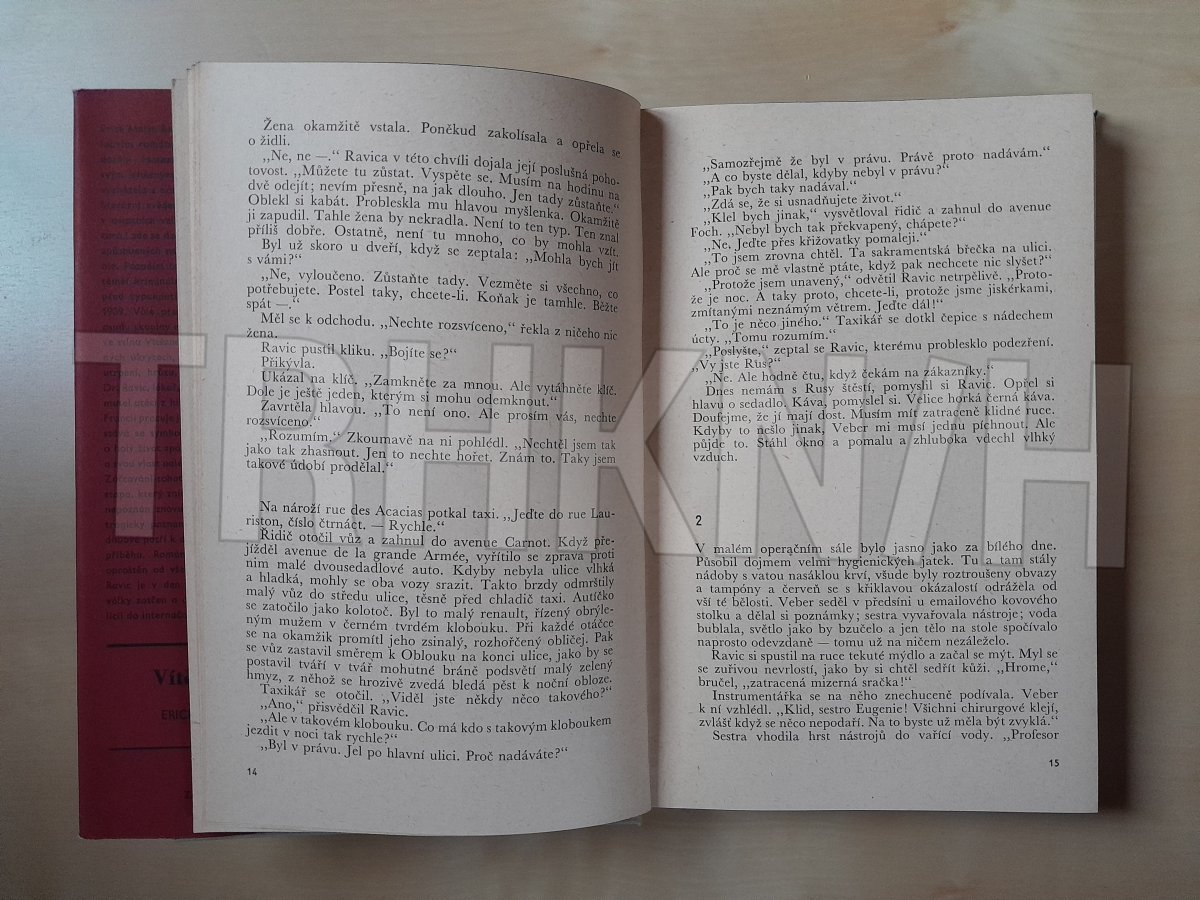 Žena okamžitě vstala. Poněkud zakolísala a opřela se
o židli.
„Ne, ne —.“ Ravica v této chvíli dojala její poslušná poho-
tovost. „Můžete tu zůstat. Vyspěte se. Musím na hodinu na
dvě odejít; nevím přesně, na jak dlouho. Jen tady zůstaňte.“
Oblekl si kabát. Probleskla mu hlavou myšlenka. Okamžitě
ji zapudil. Tahle žena by nekradla. Není to ten typ. Ten znal
příliš dobře. Ostatně, není tu mnoho, co by mohla vzít.
Byl už skoro u dveří, když se zeptala: „Mohla bych jít
s vámi?“
„Ne, vyloučeno. Zůstaňte tady. Vezměte si všechno, co
potřebujete. Postel taky, chcete-li. Koňak je tamhle. Běžte
spát —.“
Měl se k odchodu. „Nechte rozsvíceno,“ řekla z ničeho nic
žena.
Ravic pustil kliku. „Bojíte se?“
Přikývla.
Ukázal na klíč. „Zamkněte za mnou. Ale vytáhněte klíč.
Dole je ještě jeden, kterým si mohu odemknout.“
Zavrtěla hlavou. „To není ono. Ale prosím vás, nechte
rozsvíceno.“
„Rozumím.“ Zkoumavě na ni pohlédl. „Nechtěl jsem tak
jako tak zhasnout. Jen to nechte hořet. Znám to. Taky jsem
takové údobí prodělal.“
Na nároží rue des Acacias potkal taxi. „Jeďte do rue Lau-
riston, číslo čtrnáct. — Rychle.“
Řidič otočil vůz a zahnul do avenue Carnot. Když pře-
jížděl avenue de la grande Armée, vyřítilo se zprava proti
nim malé dvousedadlové auto. Kdyby nebyla ulice vlhká
a hladká, mohly se oba vozy srazit. Takto brzdy odmrštily
malý vůz do středu ulice, těsně před chladič taxi. Autíčko
se zatočilo jako kolotoč. Byl to malý renault, řízený obrýle-
ným mužem v černém tvrdém klobouku. Při každé otáčce
se na okamžik promítl jeho zsinalý, rozhořčený obličej. Pak
se vůz zastavil směrem k Oblouku na konci ulice, jako by se
postavil tváří v tvář mohutné bráně podsvětí malý zelený
hmyz, z něhož se hrozivě zvedá bledá pěst k noční obloze.
Taxikář se otočil. „Viděl jste někdy něco takového?“
„Ano,“ přisvědčil Ravic.
„Ale v takovém klobouku. Co má kdo s takovým kloboukem
jezdit v noci tak rychle?“
„Byl v právu. Jel po hlavní ulici. Proč nadáváte?“
14
„Samozřejmě že byl v právu. Právě proto nadávám.“
„A co byste dělal, kdyby nebyl v právu?“
„Pak bych taky nadával.“
„Zdá se, že si usnadňujete život.“
„Klel bych jinak,“ vysvětloval řidič a zahnul do avenue
Foch. „Nebyl bych tak překvapený, chápete?“
„Ne. Jeďte přes křižovatky pomaleji.“
„To jsem zrovna chtěl. Ta sakramentská břečka na ulici.
Ale proč se mě vlastně ptáte, když pak nechcete nic slyšet?“
„Protože jsem unavený,“ odvětil Ravic netrpělivě. „Proto-
že je noc. A taky proto, chcete-li, protože jsme jiskérkami,
zmítanými neznámým větrem. Jeďte dál!“
„To je něco jiného.“ Taxikář se dotkl čepice s nádechem
úcty. „Tomu rozumím.“
„Poslyšte,“ zeptal se Ravic, kterému problesklo podezření.
„Vy jste Rus?“
„Ne. Ale hodně čtu, když čekám na zákazníky.“
Dnes nemám s Rusy štěstí, pomyslil si Ravic. Opřel si
hlavu o sedadlo. Káva, pomyslel si. Velice horká černá káva.
Doufejme, že jí mají dost. Musím mít zatraceně klidné ruce.
Kdyby to nešlo jinak, Veber mi musí jednu píchnout. Ale
půjde to. Stáhl okno a pomalu a zhluboka vdechl vlhký
vzduch.
2
V malém operačním sále bylo jasno jako za bílého dne.
Působil dojmem velmi hygienických jatek. Tu a tam stály
nádoby s vatou nasáklou krví, všude byly roztroušeny obvazy
a tampóny a červeň se s křiklavou okázalostí odrážela od
vší té bělosti. Veber seděl v předsíni u emailového kovového
stolku a dělal si poznámky; sestra vyvařovala nástroje; voda
bublala, světlo jako by bzučelo a jen tělo na stole spočívalo
naprosto odevzdaně — tomu už na ničem nezáleželo.
Ravic si spustil na ruce tekuté mýdlo a začal se mýt. Myl se
se zuřivou nevrlostí, jako by si chtěl sedřít kůži. „Hrome,“
bručel, „zatracená mizerná sračka!“
Instrumentářka se na něho znechuceně podívala. Veber
k ní vzhlédl. „Klid, sestro Eugenie! Všichni chirurgové klejí,
zvlášť když se něco nepodaří. Na to byste už měla být zvyklá.“
Sestra vhodila hrst nástrojů do vařící vody. „Profesor
15
TRHKNIH